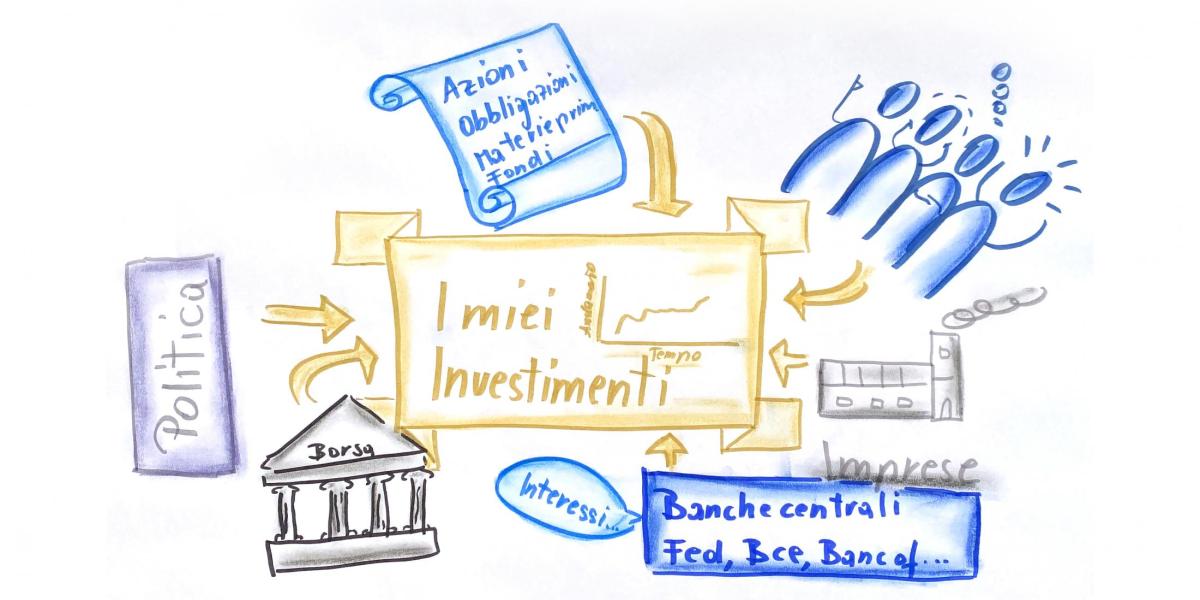 Azioni
Obbligazioni
Materieprim
Fondi
Politica
I miei
Investimenti
Andamento
Tempo
Borsa
Interessi...
Imprese
Banche centrali
Fed, Bce, Banc of...